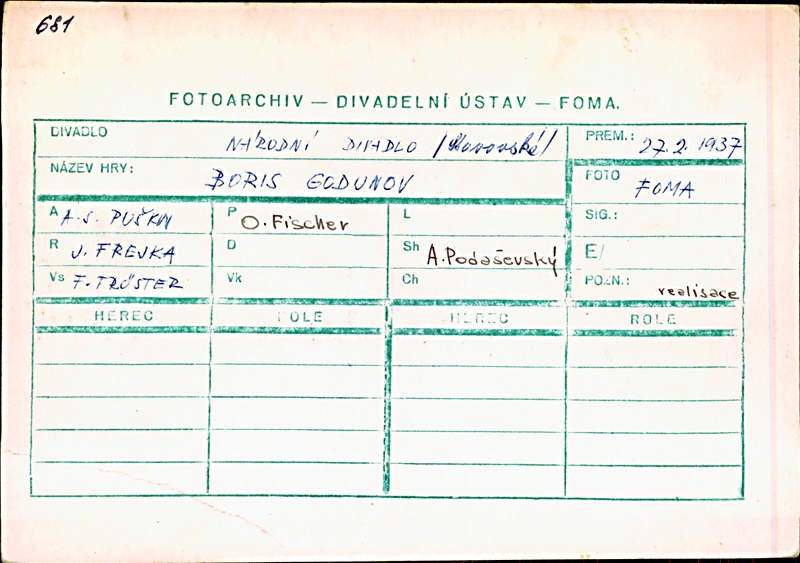 681
FOTOARCHIV — DIVADELNÍ ÚSTAV — FOMA.
DIVADLO NÁRODNÍ DIVADLO /Stavovské/ PREM.: 27.2. 1937
NÁZEV HRY: BORIS GODUNOV FOTO FOMA
A A.S. PUŠKIN P O. Fischer L SIG.:
R J. FREJKA D Sh A. Podaševský E/
Vs F. TRÖSTER Vk Ch POZN.: realisace
HEREC ROLE HEREC ROLE